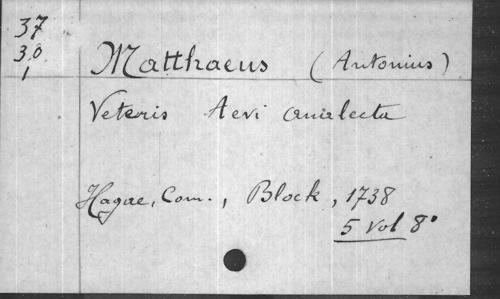 37
30
1
Matthaeus (Antonius)
Veteris Aevi analecta
Hagae, Com., Block, 1738
5 Vol 8°